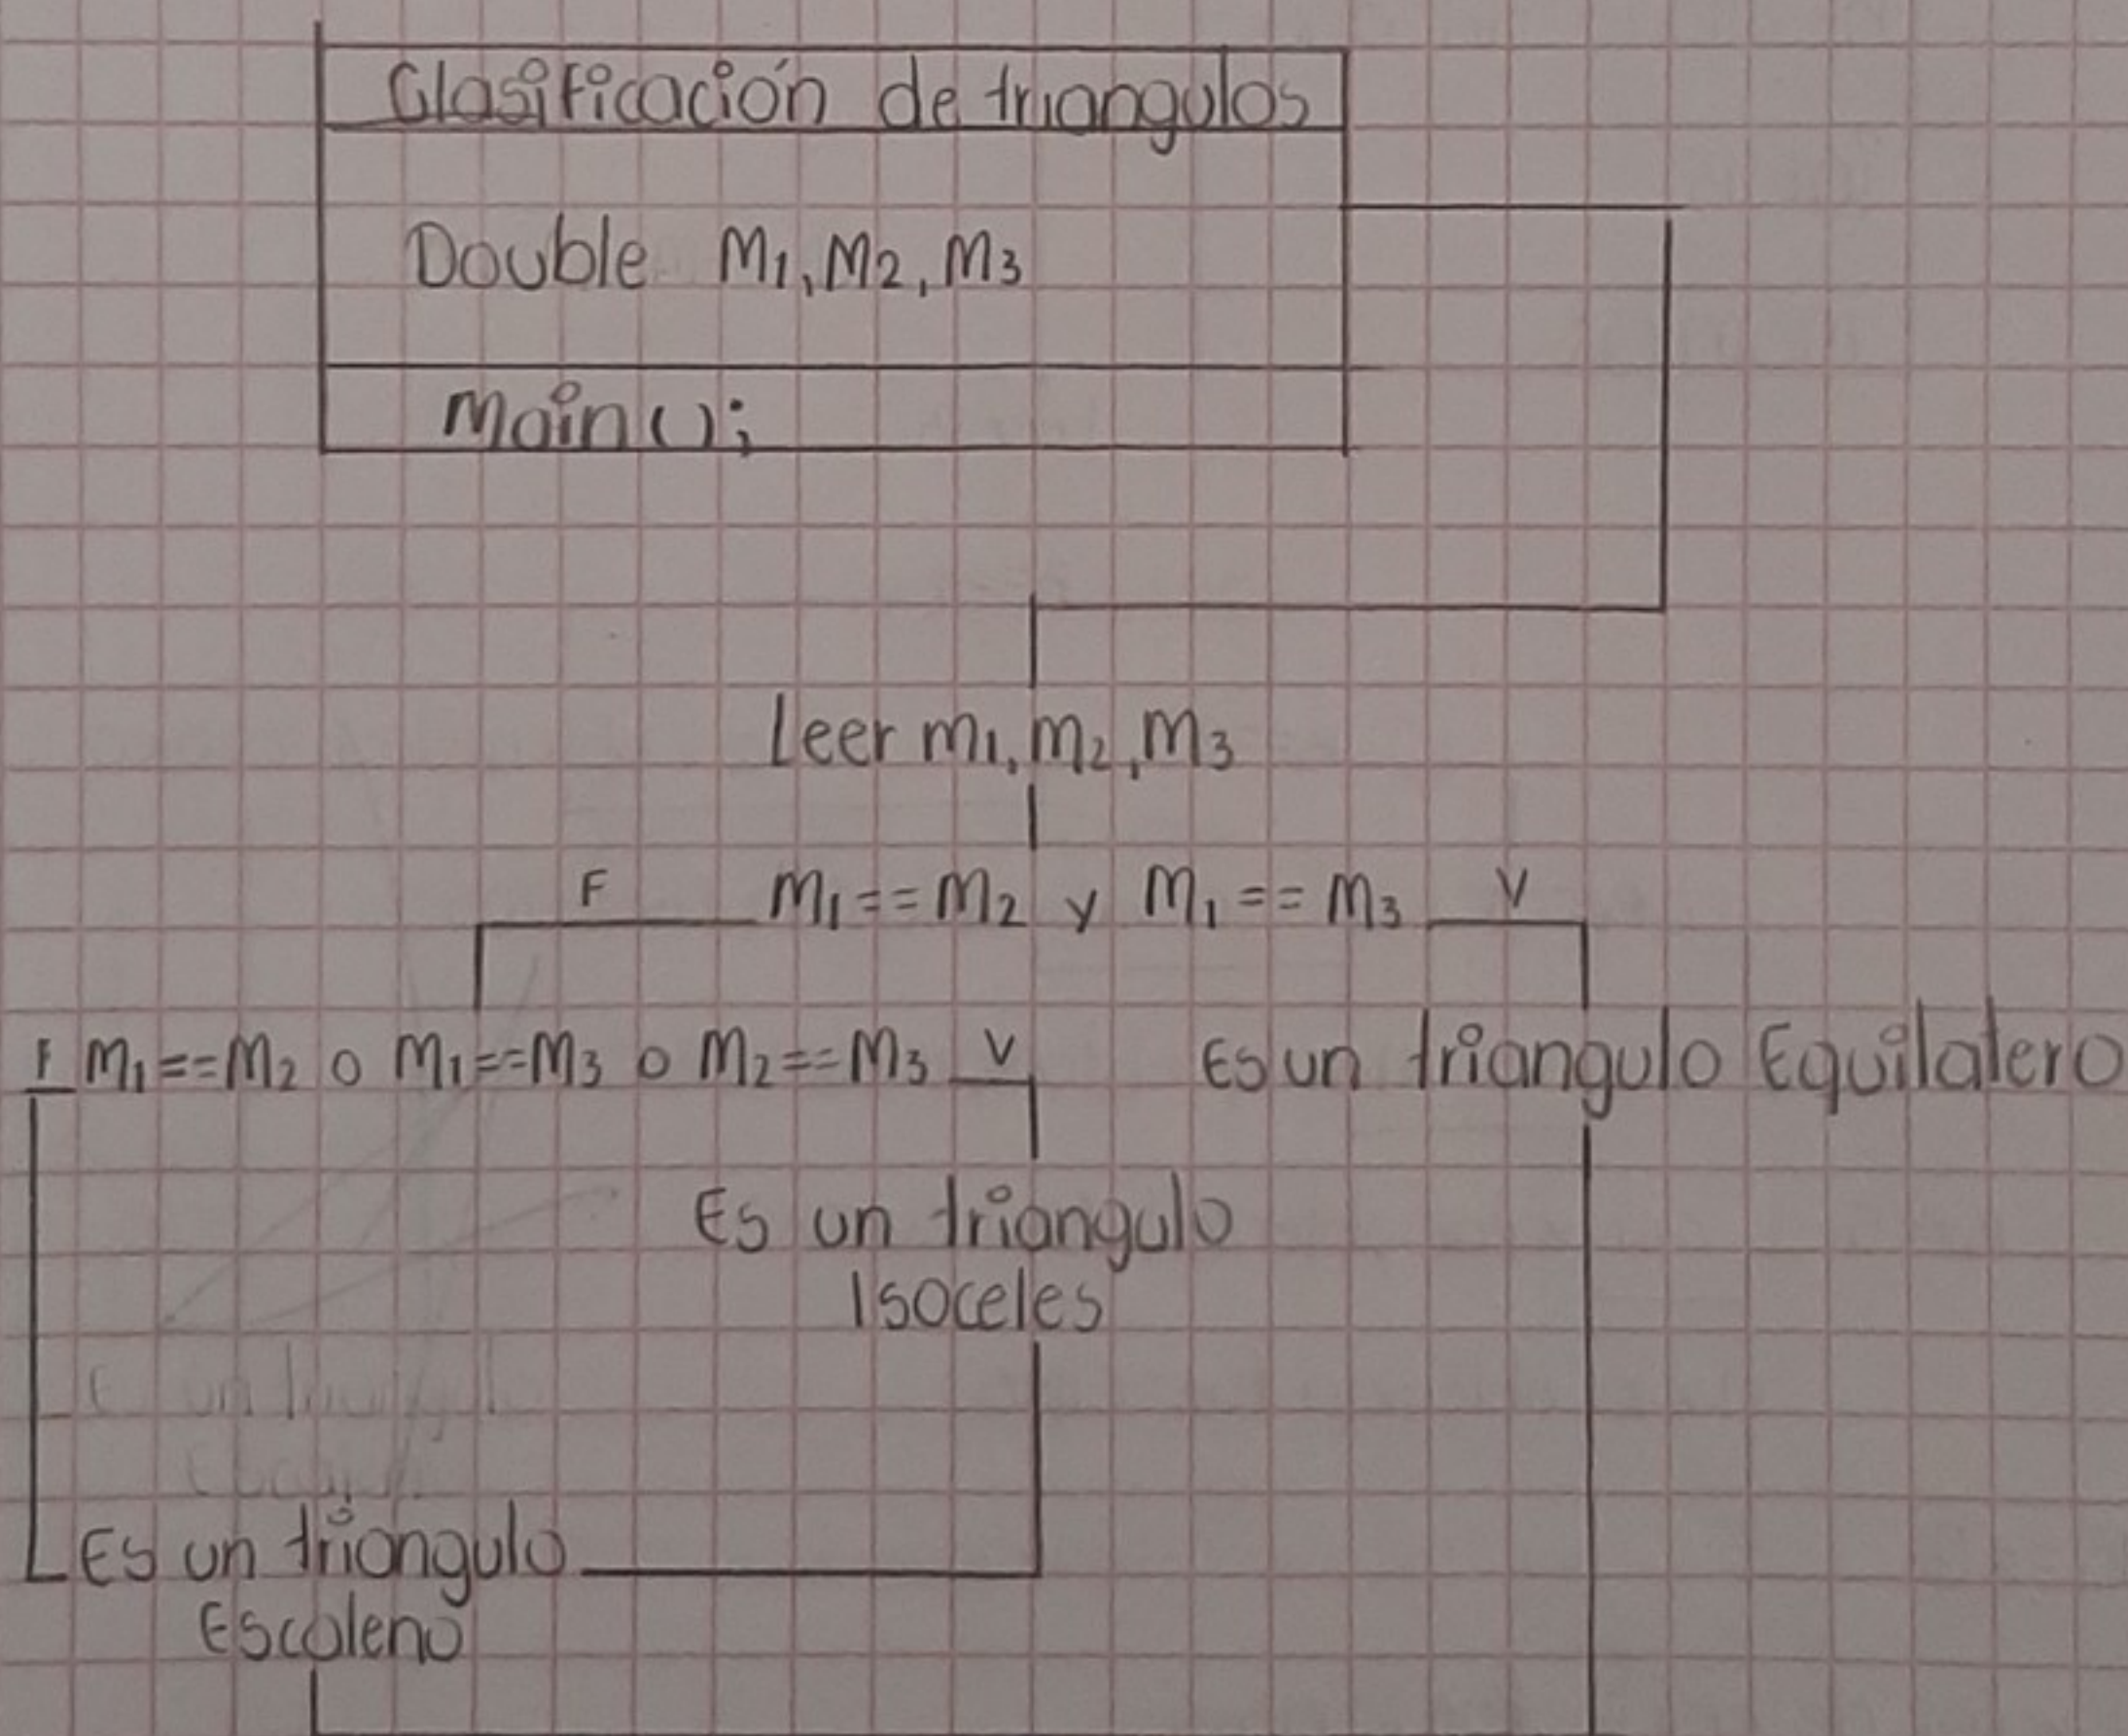 Clasificación de triangulos
Double M1, M2, M3
Main();
Leer m1, m2, m3
F M1 == M2 y M1 == M3 V
F M1 == M2 o M1 == M3 o M2 == M3 V
Es un triangulo Equilatero
Es un triangulo
Isoceles
Es un triangulo
Escaleno